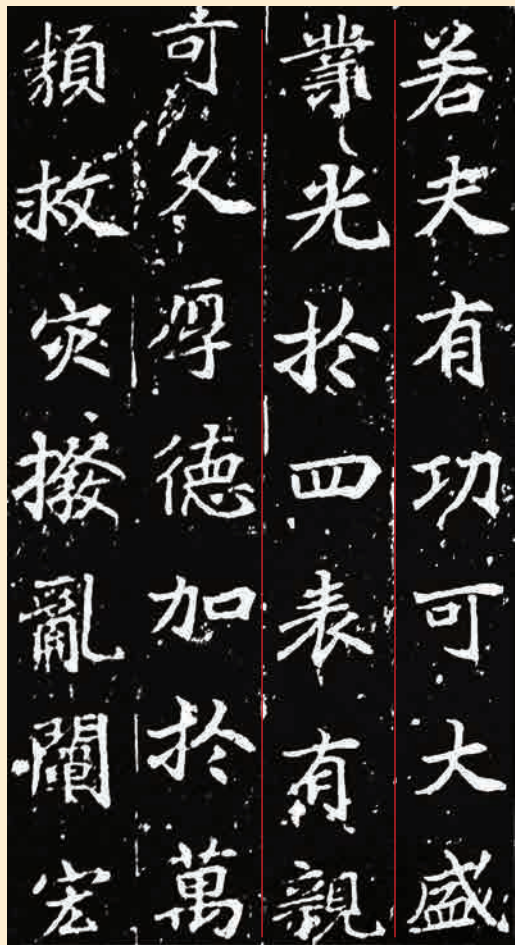 若夫有功可大盛
業光扵四表有親
可久厚德加扵萬
類救灾撥亂闡宏